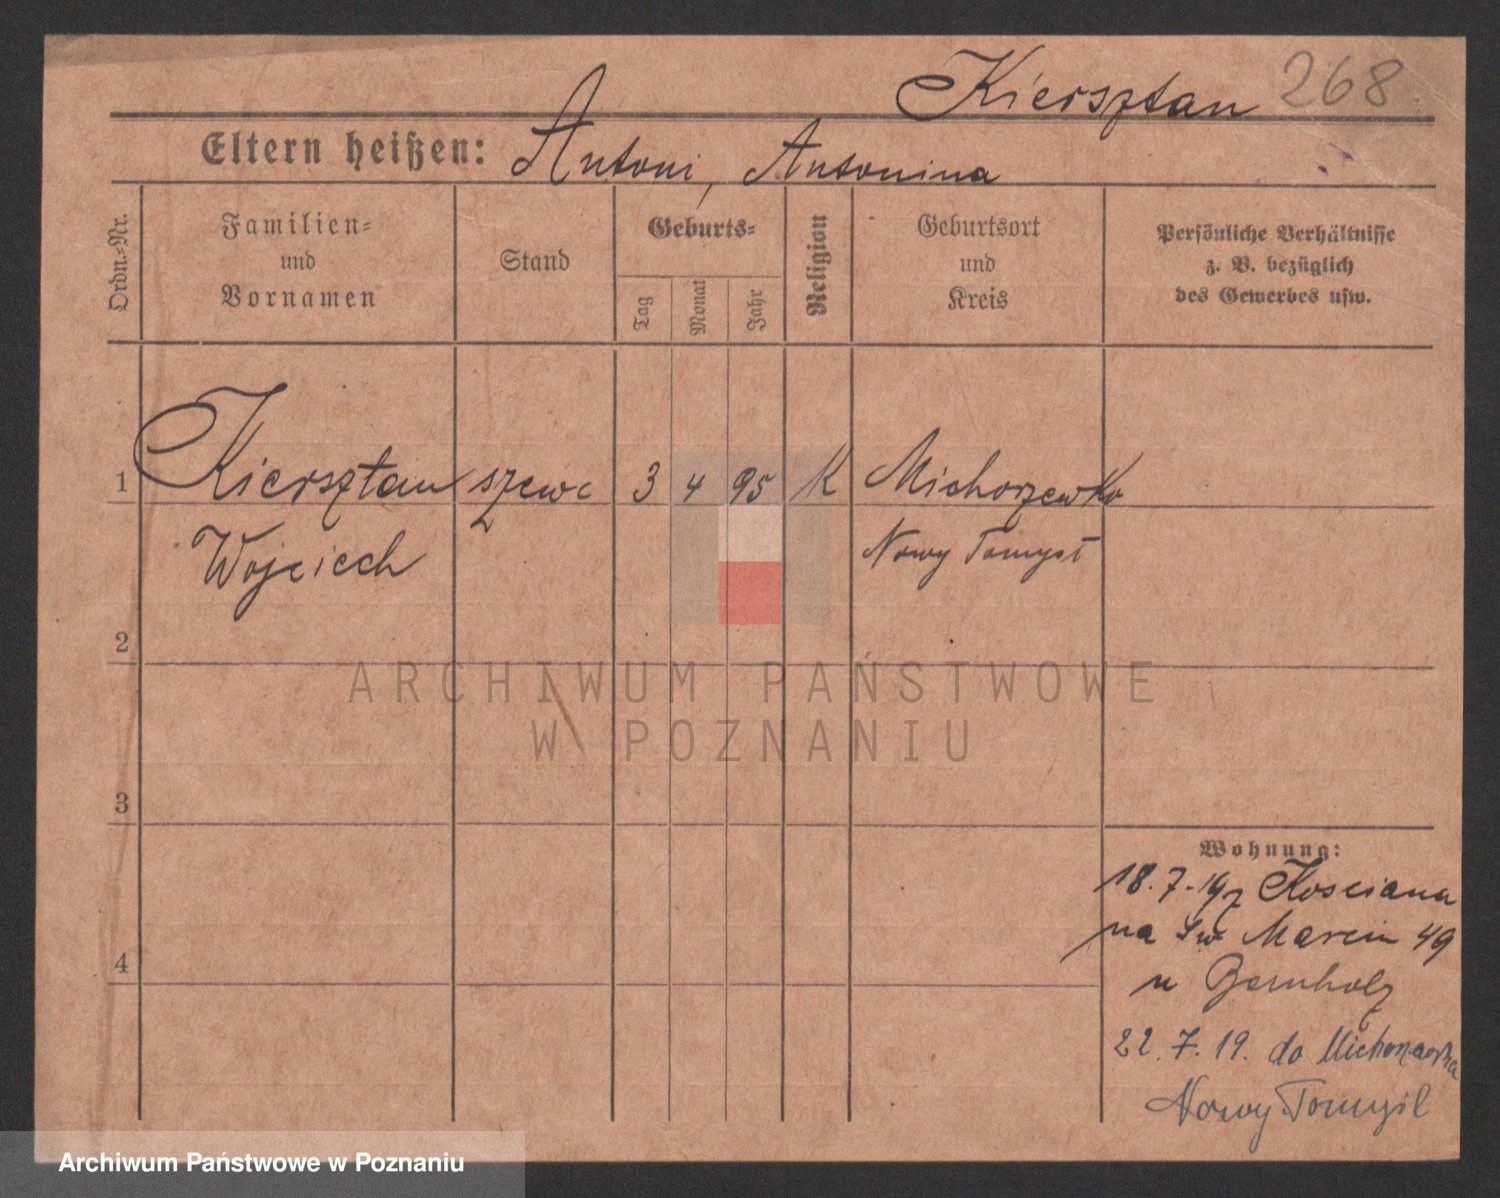 Kiersztan 268
Eltern heißen: Antoni, Antonina
Ordn.-Nr.
Familien-
und
Vornamen
Stand
Geburts-
Tag
Monat
Jahr
Religion
Geburtsort
und
Kreis
Persönliche Verhältnisse
z. B. bezüglich
des Gewerbes usw.
1 Kiersztan szewc 3 4 95 K Michorzewko
Wojciech Nowy Tomysł
2
ARCHIWUM PAŃSTWOWE
W POZNANIU
3
Wohnung:
18.7.19 z Kosciana
na Św Marcin 49
4
u Bernholz
22.7.19. do Michorzewka
Nowy Tomyśl
Archiwum Państwowe w Poznaniu